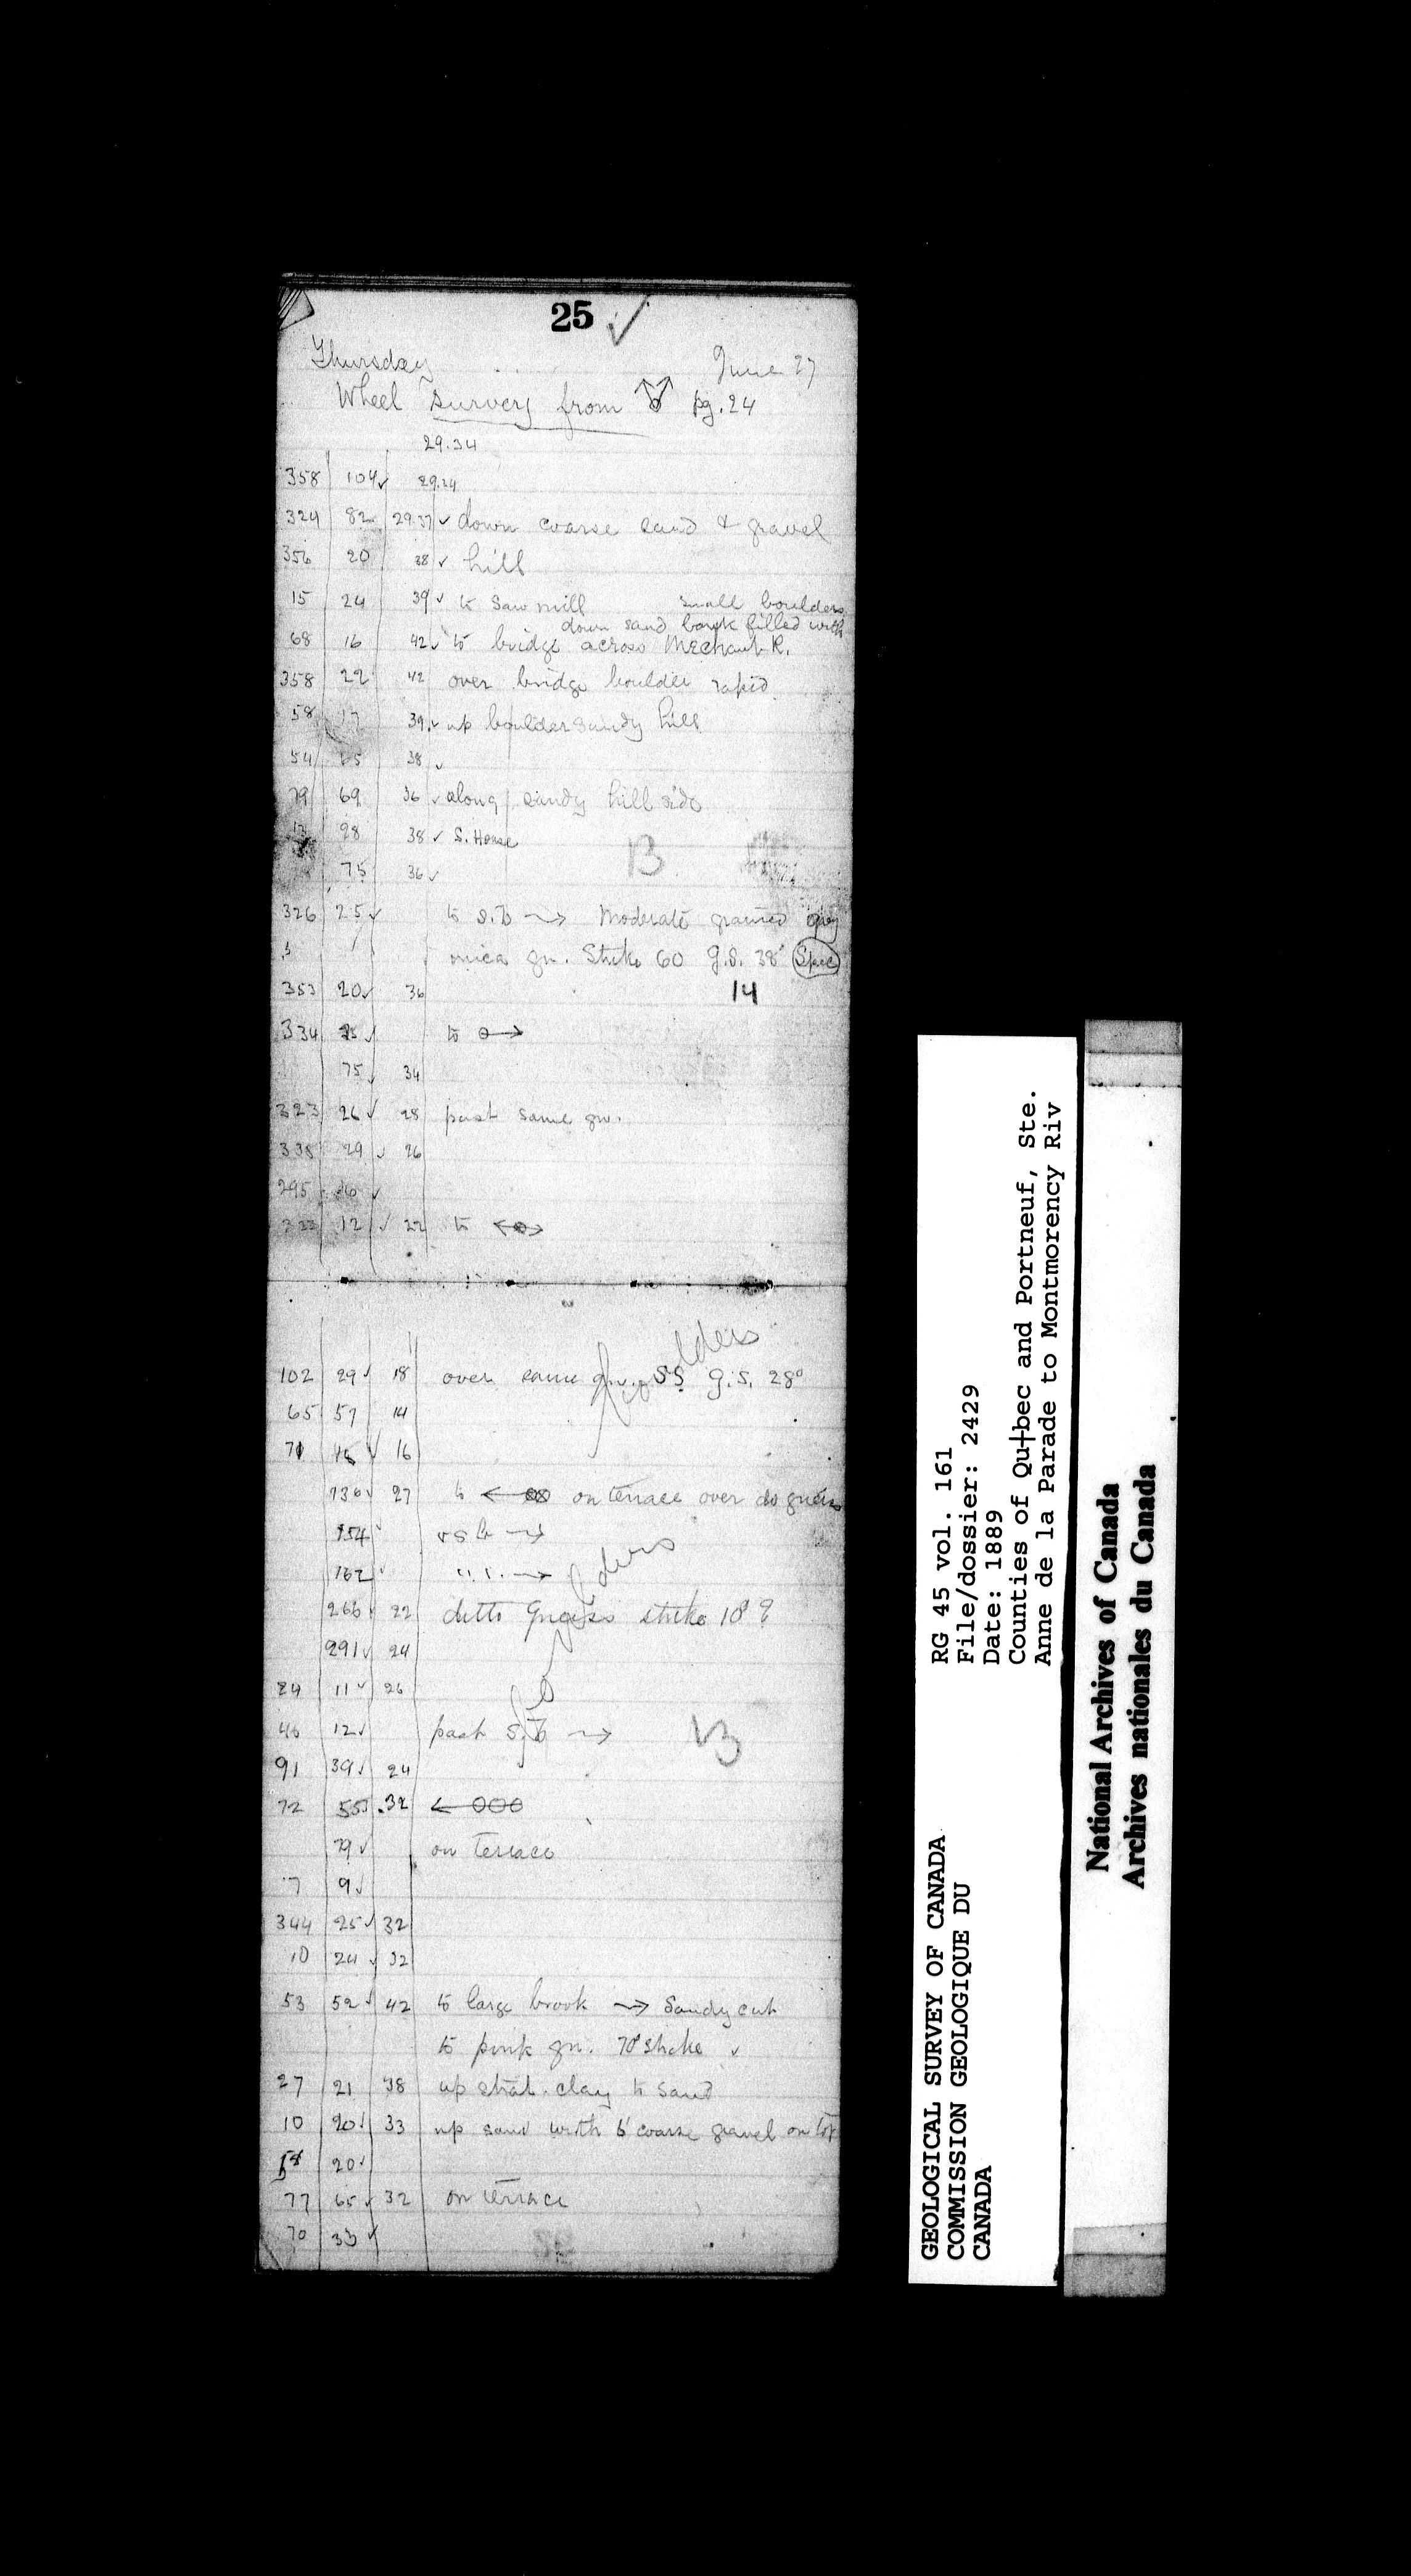 25 ✓
Thursday June 27
Wheel survey from pg. 24
29.34
358 104✓ 29.24
324 82 29.37 ✓ down coarse sand & gravel
356 20 38 ✓ hill
15 24 39 ✓ to saw mill small boulders
down sand bank filled with
68 16 42 ✓ to bridge across Mechant R.
358 22 42 over bridge boulder rapid
58 39 ✓ up boulder sandy hill
54 38 ✓
79 69 36 ✓ along sandy hill side
98 38 ✓ S. House
B
75 36 ✓
326 25 ✓ to S.B → Moderate grained grey
mica gn. Strike 60 g.s. 38° Spec
353 20 ✓ 36 14
334 ✓ to →
75 ✓ 34
323 26 ✓ 28 past same gn.
338 29 ✓ 26
295 ✓
12 ✓ 22 to
102 29 ✓ 18 over same gn. g.s. 28°
65 57 14
boulders
71 ✓ 16
136 ✓ 27 to ← on terrace over do gneiss
154 →
162 ✓ " " →
boulders
266 ✓ 22 ditto gneiss strike 10° ?
291 ✓ 24
24 11 ✓ 26
46 12 ✓ past S.B →
B
91 39 ✓ 24
72 55 .32 ←
79 ✓ on terrace
7 9 ✓
344 25 ✓ 32
10 24 ✓ 32
53 52 ✓ 42 to large brook → Sandy cut
to pink gn. 70° strike ✓
27 21 38 up strat. clay to sand
10 20 ✓ 33 up sand with 6' coarse gravel on top
20 ✓
77 65 ✓ 32 on terrace
70 33 ✓
RG 45 vol. 161
File/dossier: 2429
Date: 1889
Counties of Qu┼bec and Portneuf, Ste.
Anne de la Parade to Montmorency Riv
GEOLOGICAL SURVEY OF CANADA
COMMISSION GEOLOGIQUE DU
CANADA
National Archives of Canada
Archives nationales du Canada